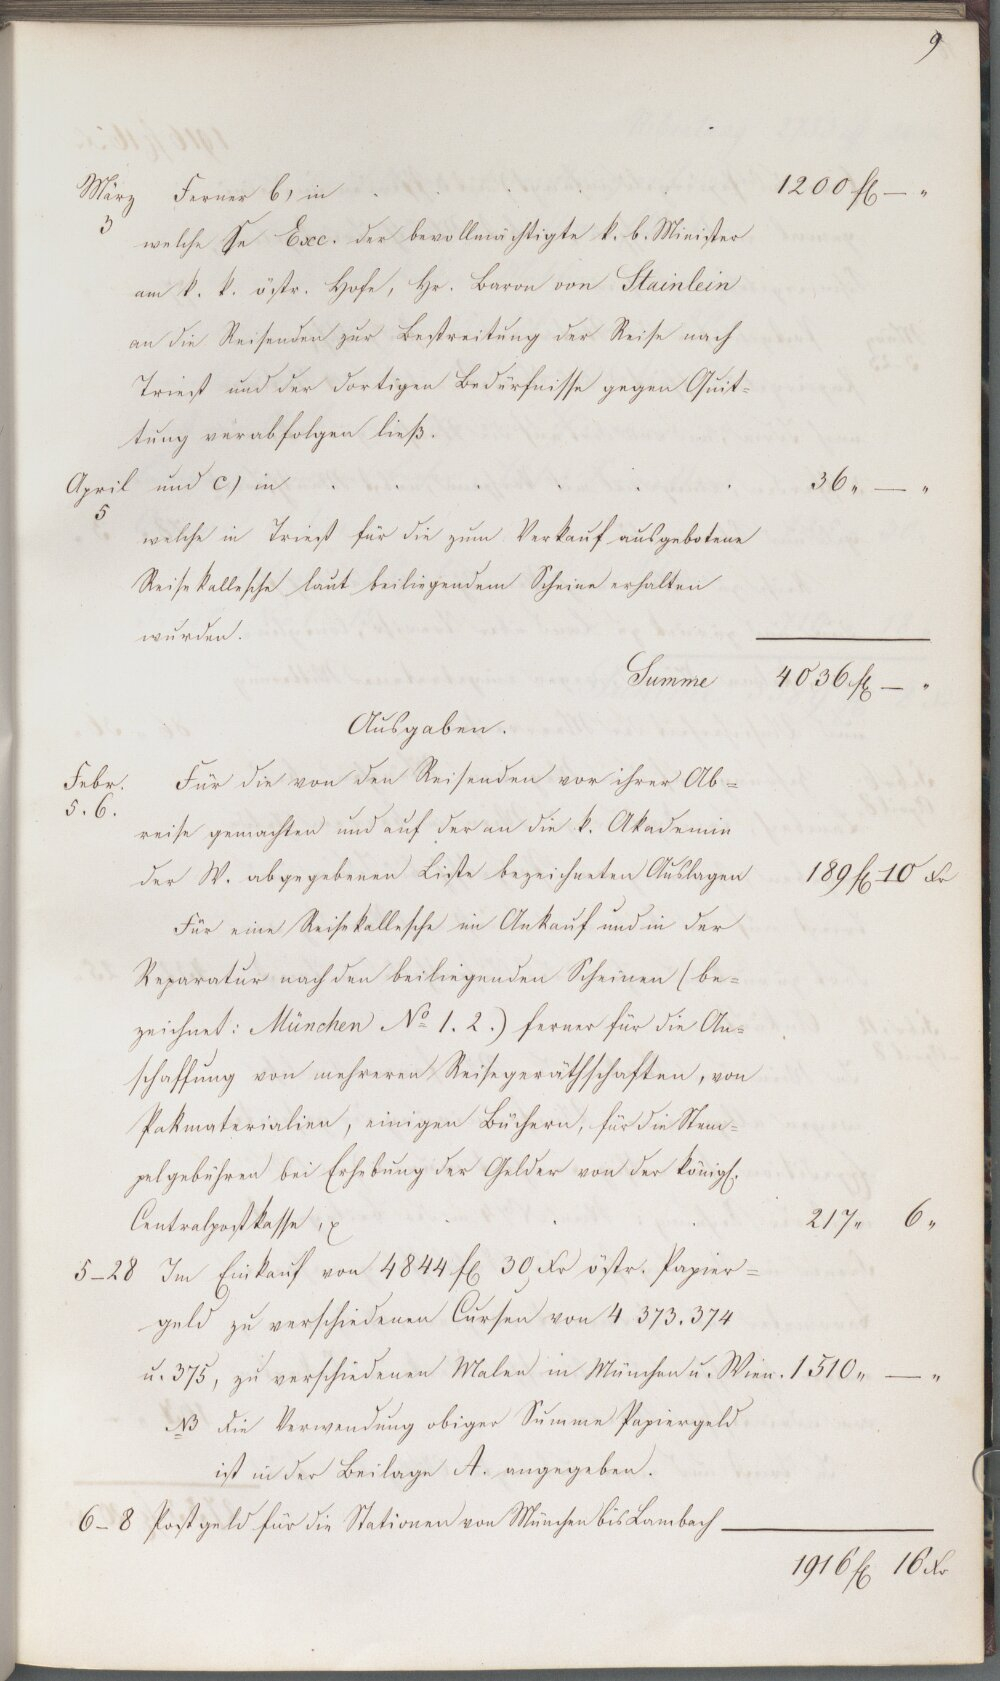 9
März Ferner b) in . . . . . 1200 fl — "
3
welche Se Exc. der bevollmächtigte k. b. Minister
am k. k. östr. Hofe, Hr. Baron von Stainlein
an die Reisenden zur Bestreitung der Reise nach
Triest und der dortigen Bedürfnisse gegen Quit=
tung verabfolgen ließ.
April und c) in . . . . . . 36 " — "
5
welche in Triest für die zum Verkauf ausgebotene
Reisekallesche laut beiliegendem Scheine erhalten
wurden.
Summe 4036 fl — "
Ausgaben.
Febr. Für die von den Reisenden vor ihrer Ab=
5. 6.
reise gemachten und auf der an die k. Akademie
der W. abgegebenen Liste bezeichneten Auslagen 189 fl 10 Kr
Für eine Reisekallesche im Ankauf und in der
Reparatur nach den beiliegenden Scheinen (be=
zeichnet: München No 1. 2.) ferner für die An=
schaffung von mehreren Reisegeräthschaften, von
Pakmaterialien, einigen Büchern, für die Stem=
pelgebühren bei Erhebung der Gelder von der königl.
Centralpostkasse, . . . 217 " 6 "
5–28 Im Einkauf von 4844 fl 30 Kr östr. Papier=
geld zu verschiedenen Cursen von 4 373. 374
u. 375, zu verschiedenen Malen in München u. Wien. 1510 " — "
NB Die Verwendung obiger Summe Papiergeld
ist in der Beilage A. angegeben.
6–8 Postgeld für die Stationen von München bis Lambach
1916 fl 16 Kr